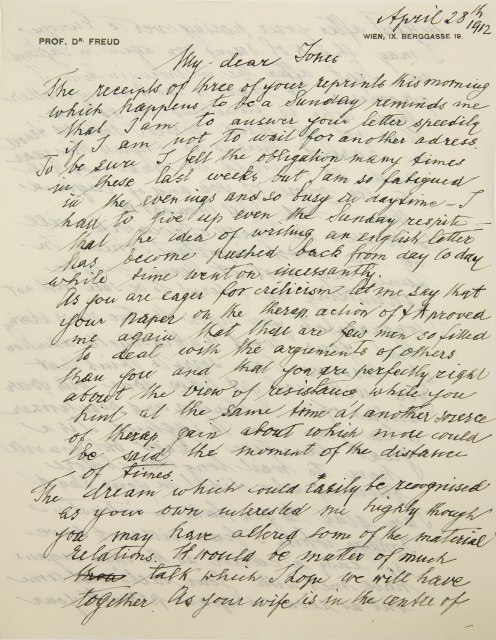 April 28th
1912
PROF. DR. FREUD
WIEN, IX. BERGGASSE 19.
My dear Jones
The receipts of three of your reprints this morning
which happens to be a Sunday reminds me
that I am to answer your letter speedily
if I am not to wait for another adress.
To be sure I felt the obligation many times
in these last weeks but I am so fatigued
in the evenings and so busy in daytime – I
had to give up even the Sunday respite –
that the idea of writing an english letter
has become pushed back from day to day
while time went on incessantly.
As you are eager for criticism let me say that
your paper on the therap. action of ΨA proved
me again that there are few men so fitted
to deal with the arguments of others
than you and that you are perfectly right
about the view of resistance while you
hint at the same time at another source
of therap gain about which more could
be said the moment of the distance
of times.
The dream which could easily be recognised
as your own interested me highly though
you may have altered some of the material
relations. It would be matter of much
talk which I hope we will have
together. As your wife is in the centre of